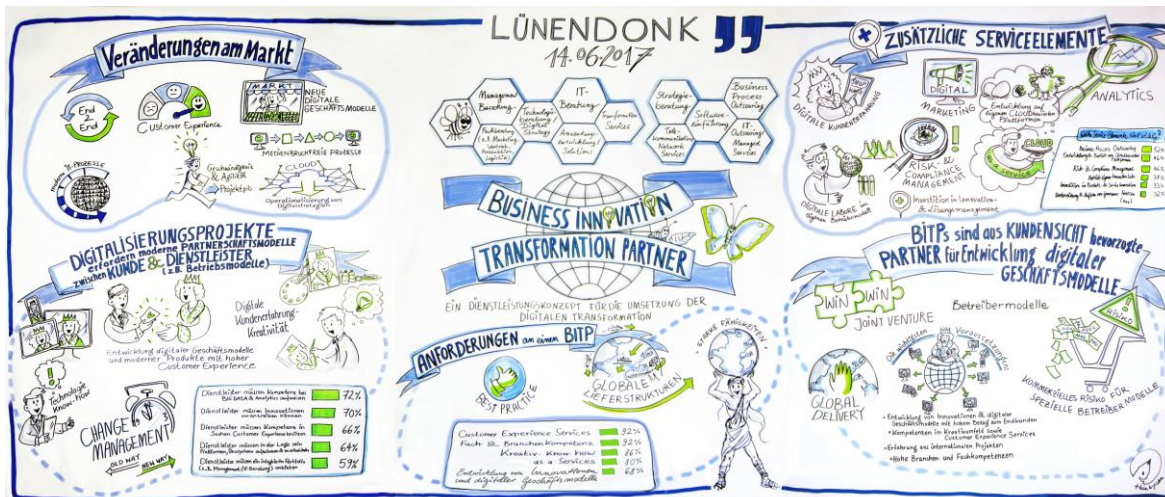 LÜNENDONK
14.06.2017
Veränderungen am Markt
End
2
End
Customer Experience
MARKT
NEUE
DIGITALE
GESCHÄFTSMODELLE
MEDIENBRUCHFREIE PROZESSE
IT-PROZESSE
modern
Geschwindigkeit
& Agilität
Projekt
CLOUD
Operationalisierung von
Digitalstrategien
DIGITALISIERUNGSPROJEKTE
erfordern moderne PARTNERSCHAFTSMODELLE
zwischen KUNDE & DIENSTLEISTER
(z.B. Betriebsmodelle)
Digitale
Kundenerfahrung-
Kreativität
Entwicklung digitaler Geschäftsmodelle
und moderner Produkte mit hoher
Customer Experience
Technologie
Know-how
CHANGE
MANAGEMENT
OLD WAY
NEW WAY
Dienstleister müssen Kompetenz bei
BIG DATA & Analytics aufweisen
72%
Dienstleister müssen Innovationen
vorantreiben können
70%
Dienstleister müssen Kompetenz in
Sachen Customer Experience
66%
Dienstleister müssen in der Lage sein
64%
59%
Management
Beratung
Technologie-
beratung
Strategy
IT-
Beratung
Anwendungs-
entwicklung/
Solutions
Transformation
Services
Strategie-
beratung
Tele-
kommunikation
Network
Services
Software-
einführung
Business
Process
Outsourcing
IT-
Outsourcing
Managed
Services
BUSINESS INNOVATION
TRANSFORMATION PARTNER
EIN DIENSTLEISTUNGSKONZEPT FÜR DIE UMSETZUNG DER
DIGITALEN TRANSFORMATION
ANFORDERUNGEN an einen BITP
BEST PRACTICE
GLOBALE
LIEFERSTRUKTUREN
STARKE FÄHIGKEITEN
Customer Experience Services 92%
Fach- & Branchenkompetenz 92%
Kreativ-know-how 86%
as a Services 80%
Entwicklung von Innovationen 68%
und digitaler Geschäftsmodelle
+ ZUSÄTZLICHE SERVICEELEMENTE
DIGITALE KUNDENERFAHRUNG
DIGITAL
MARKETING
Entwicklung auf
eigenen CLOUDbasierten
Plattformen
ANALYTICS
RISK- &
COMPLIANCE
MANAGEMENT
CLOUD
as a service
DIGITALE LABORE im
eigenen Betriebsumfeld
Investition in Innovation-
& Lösungsmanagement
Business Process Outsourcing
Risk- & Compliance Management
BITPs sind aus KUNDENSICHT bevorzugte
PARTNER für Entwicklung digitaler
GESCHÄFTSMODELLE
WIN WIN
JOINT VENTURE
Betreibermodelle
Die wichtigsten Voraussetzungen
RISIKO
KOMMERZIELLES RISIKO FÜR
SPEZIELLE BETREIBERMODELLE
GLOBAL
DELIVERY
• Entwicklung von Innovationen & digitaler
Geschäftsmodelle mit hohem Bezug zum Endkunden
• Kompetenzen im Kreativumfeld sowie
Customer Experience Services
• Erfahrung aus internationalen Projekten
• Hohe Branchen- und Fachkompetenzen